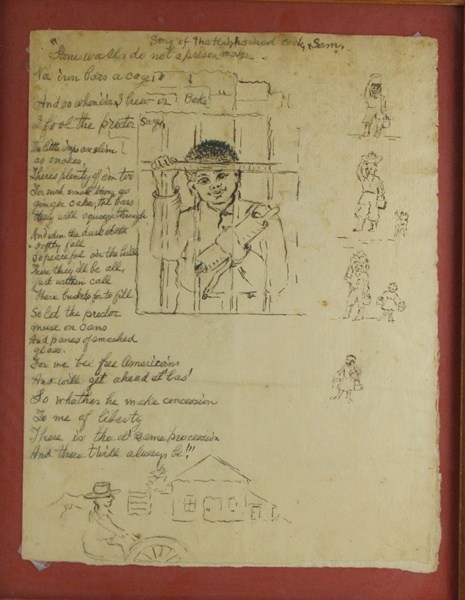 Song of the High school cook, Sam,
"Stone walls do not a prison make
Na iron bars a cage"
And so whenever I hew in Beds
I fool the proctor Sage,
The little imps are slim
as snakes,
There's plenty of em too
ginger cake, the bars
they will squeeze through
And when the dusk doth
softly fall
So peaceful oer the hills
There they'll be all,
just within call
There buckets for to fill
So let the proctor
muse on cans
And panes of smashed
glass.
For we be free Americans
And will get ahead at las'
So whether he make concession
To me of liberty
There is the ol' same procession
And there t'will always be!"